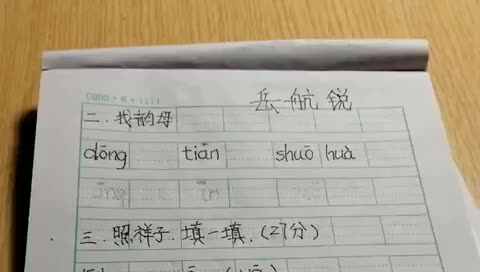 岳航锐
二.找韵母
dōng tiān shuō huà
三.照样子.填一填.(27分)